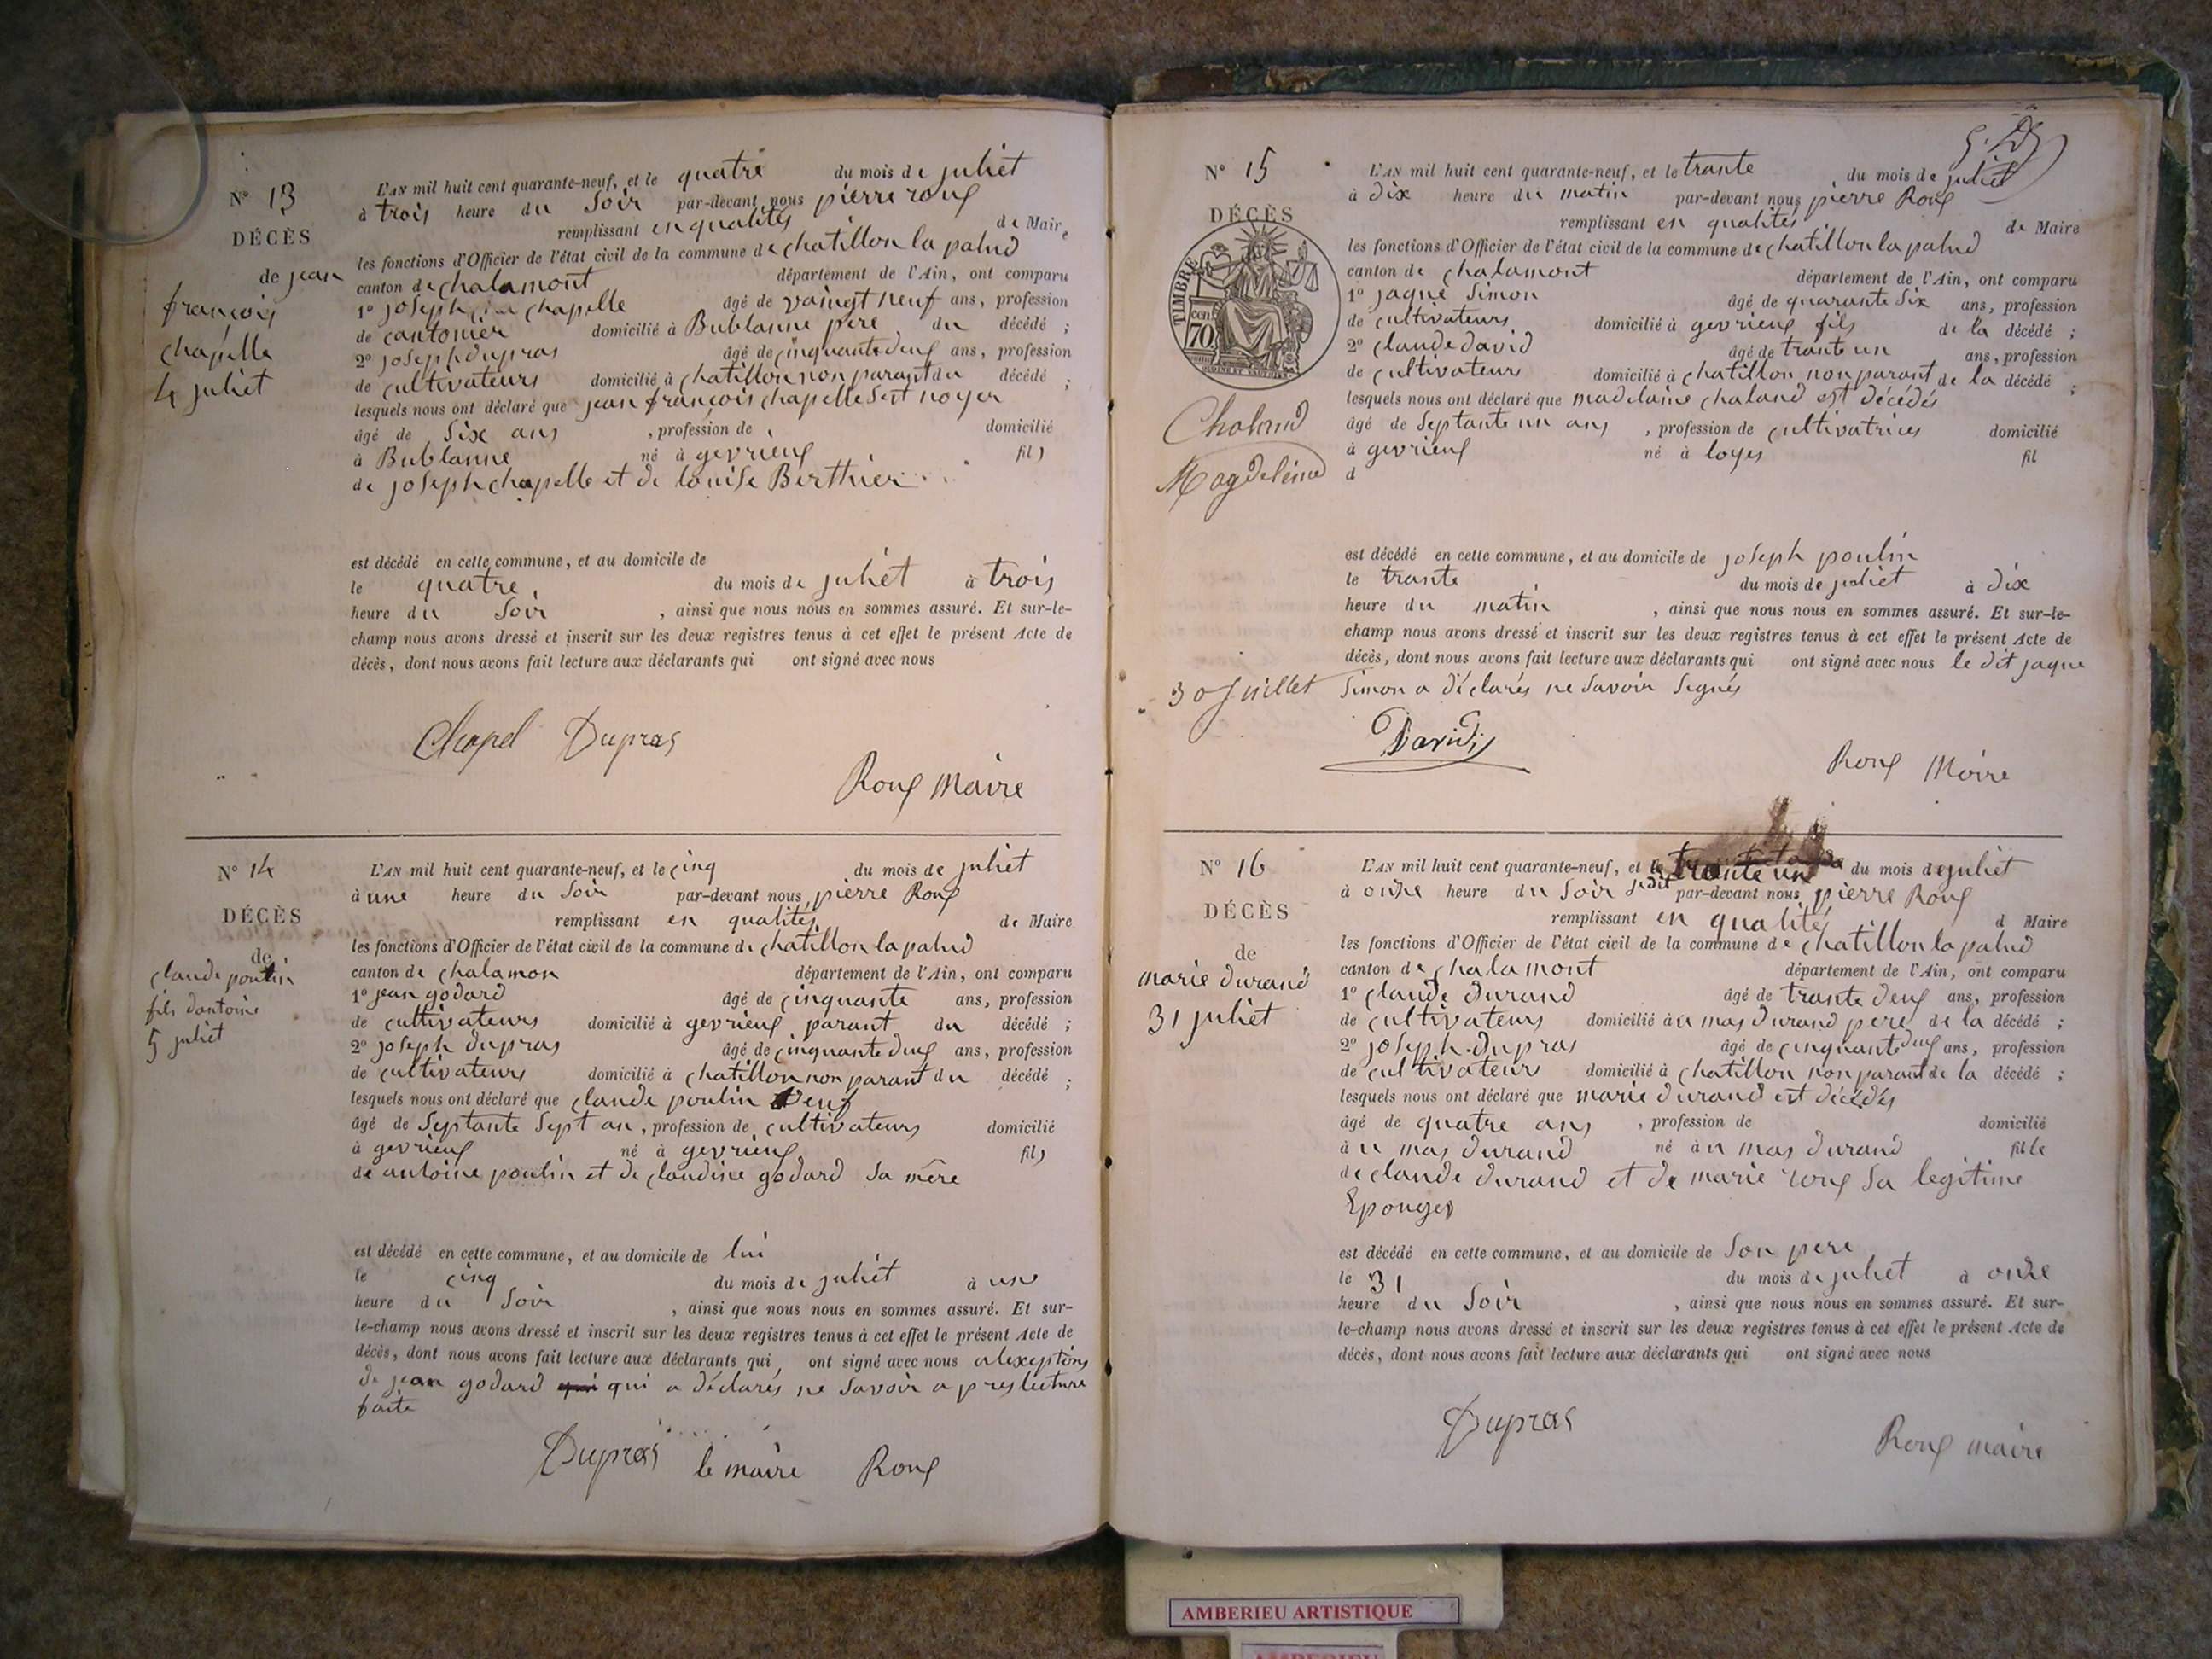 N° 13
DÉCÈS
de jean
françois
chapelle
4 juliet
L'AN mil huit cent quarante-neuf, et le quatre du mois de juliet
à trois heure du Soir par-devant nous pierre roux
remplissant en qualités de Maire
les fonctions d'Officier de l'état civil de la commune de chatillon la palud
canton de chalamont département de l'Ain, ont comparu
1° joseph chapelle âgé de vaingt neuf ans, profession
de cantonier domicilié à Bublanne père du décédé ;
2° joseph dupras âgé de cinquante deux ans, profession
de cultivateurs domicilié à chatillon non parant du décédé ;
lesquels nous ont déclaré que jean françois chapelle sest noyer
âgé de Six ans , profession de domicilié
à Bublanne né à gevrieux fils
de joseph chapelle et de louise Berthier
est décédé en cette commune, et au domicile de
le quatre du mois de juliet à trois
heure du Soir , ainsi que nous nous en sommes assuré. Et sur-le-
champ nous avons dressé et inscrit sur les deux registres tenus à cet effet le présent Acte de
décès, dont nous avons fait lecture aux déclarants qui ont signé avec nous
Chapel Dupras
Roux Maire
N° 14
DÉCÈS
de
claude poulin
fils dantoine
5 juliet
L'AN mil huit cent quarante-neuf, et le cinq du mois de juliet
à une heure du Soir par-devant nous pierre Roux
remplissant en qualités de Maire
les fonctions d'Officier de l'état civil de la commune de chatillon la palud
canton de chalamon département de l'Ain, ont comparu
1° jean godard âgé de cinquante ans, profession
de cultivateurs domicilié à gevrieux parant du décédé ;
2° joseph dupras âgé de cinquante deux ans, profession
de cultivateurs domicilié à chatillon non parant du décédé ;
lesquels nous ont déclaré que claude poulin veuf
âgé de Septante Sept an , profession de cultivateurs domicilié
à gevrieux né à gevrieux fils
de antoine poulin et de claudine godard Sa mère
est décédé en cette commune, et au domicile de lui
le cinq du mois de juliet à une
heure du Soir , ainsi que nous nous en sommes assuré. Et sur-
le-champ nous avons dressé et inscrit sur les deux registres tenus à cet effet le présent Acte de
décès, dont nous avons fait lecture aux déclarants qui ont signé avec nous alexeptions
de jean godard qui qui a déclarés ne Savoir apres lecture
faite
Dupras le maire Roux
N° 15
DÉCÈS
TIMBRE
70 cen
Chaland
Magdeleine
30 Juillet
L'AN mil huit cent quarante-neuf, et le trante du mois de juliet
à dix heure du matin par-devant nous pierre Roux
remplissant en qualités de Maire
les fonctions d'Officier de l'état civil de la commune de chatillon la palud
canton de chalamont département de l'Ain, ont comparu
1° jaque Simon âgé de quarante Six ans, profession
de cultivateurs domicilié à gevrieux fils de la décédé ;
2° claude david âgé de trante un ans, profession
de cultivateurs domicilié à chatillon non parant de la décédé ;
lesquels nous ont déclaré que madelaine chaland est décédés
âgé de Septante un ans , profession de cultivatrices domicilié
à gevrieux né à loyes fil
d
est décédé en cette commune, et au domicile de joseph poulin
le trante du mois de juliet à dix
heure du matin , ainsi que nous nous en sommes assuré. Et sur-le-
champ nous avons dressé et inscrit sur les deux registres tenus à cet effet le présent Acte de
décès, dont nous avons fait lecture aux déclarants qui ont signé avec nous le dit jaque
Simon a déclarés ne Savoir Signés
David
Roux Maire
N° 16
DÉCÈS
de
marie durand
31 juliet
L'AN mil huit cent quarante-neuf, et le trante un du mois de juliet
à onze heure du Soir par-devant nous pierre Roux
remplissant en qualités d Maire
les fonctions d'Officier de l'état civil de la commune de chatillon la palud
canton de chalamont département de l'Ain, ont comparu
1° claude durand âgé de trante deux ans, profession
de cultivateurs domicilié à u mas durand pere de la décédé ;
2° joseph dupras âgé de cinquante deux ans, profession
de cultivateurs domicilié à chatillon non parant de la décédé ;
lesquels nous ont déclaré que marie durand est décédés
âgé de quatre ans , profession de domicilié
à u mas durand né à u mas durand fille
de claude durand et de marie roux Sa legitime
Epouges
est décédé en cette commune, et au domicile de Son pere
le 31 du mois de juliet à onze
heure du Soir , ainsi que nous nous en sommes assuré. Et sur-
le-champ nous avons dressé et inscrit sur les deux registres tenus à cet effet le présent Acte de
décès, dont nous avons fait lecture aux déclarants qui ont signé avec nous
Dupras
Roux maire
AMBERIEU ARTISTIQUE
AMBERIEU